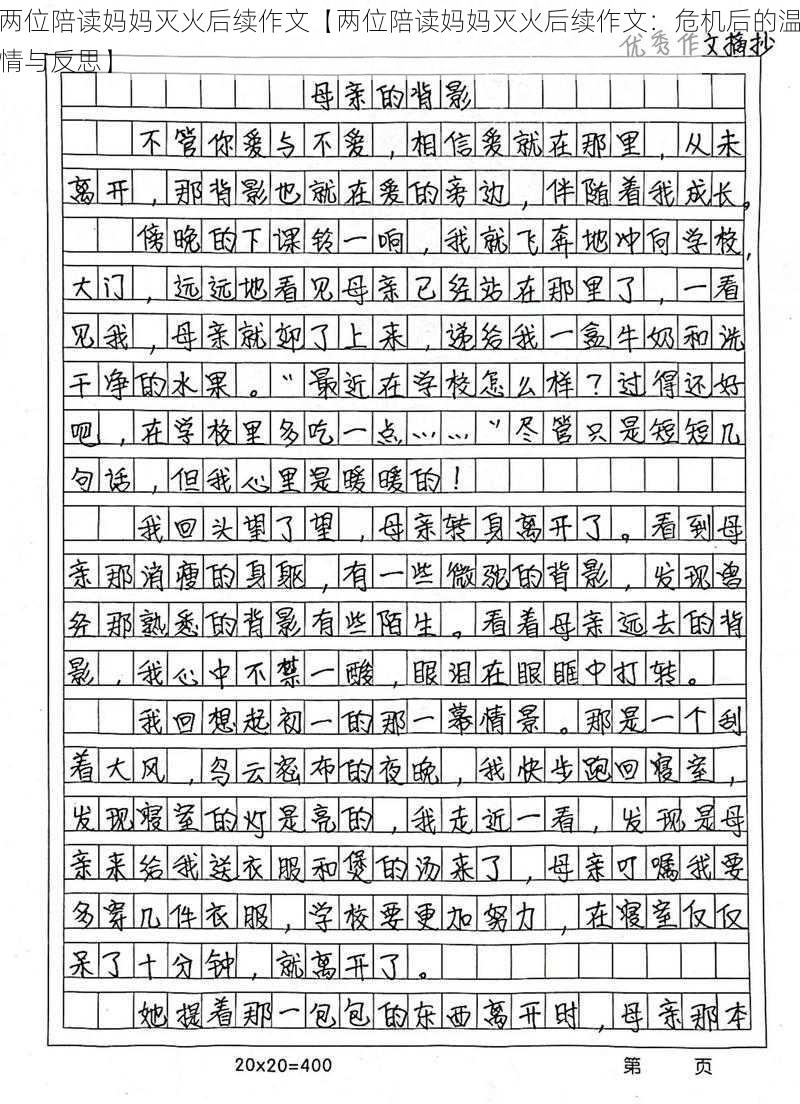 两位陪读妈妈灭火后续作文【两位陪读妈妈灭火后续作文：危机后的温
情与反思】
优秀作文摘抄
母亲的背影
不管你爱与不爱，相信爱就在那里，从未
离开，那背影也就在爱的旁边，伴随着我成长。
傍晚的下课铃一响，我就飞奔地冲向学校，
大门，远远地看见母亲已经站在那里了，一看
见我，母亲就迎了上来，递给我一盒牛奶和洗
干净的水果。“最近在学校怎么样？过得还好
吧，在学校里多吃一点……”尽管只是短短几
句话，但我心里是暖暖的！
我回头望了望，母亲转身离开了。看到母
亲那消瘦的身躯，有一些微驼的背影，发现曾
经那熟悉的背影有些陌生。看着母亲远去的背
影，我心中不禁一酸，眼泪在眼眶中打转。
我回想起初一的那一幕情景。那是一个刮
着大风，乌云密布的夜晚，我快步跑回寝室，
发现寝室的灯是亮的，我走近一看，发现是母
亲来给我送衣服和煲的汤来了，母亲叮嘱我要
多穿几件衣服，学校要更加努力，在寝室仅仅
呆了十分钟，就离开了。
她提着那一包包的东西离开时，母亲那本
20×20=400 第 页